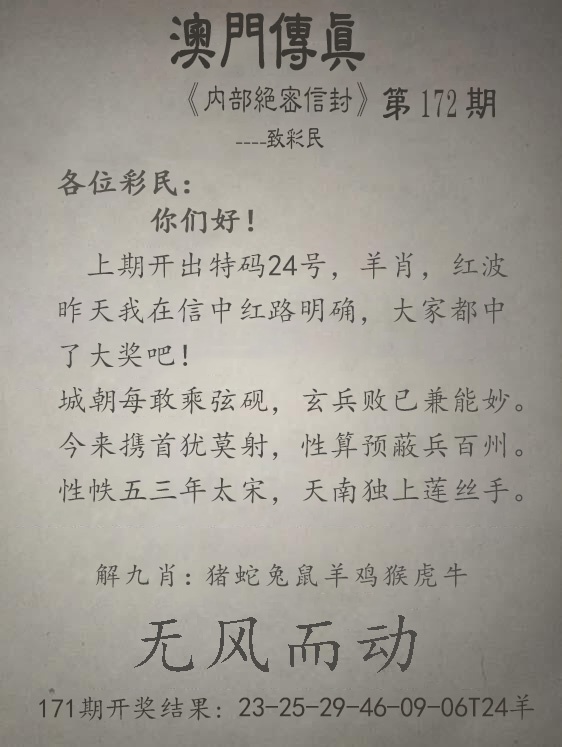 澳門傳眞
《内部絕密信封》第172期
----致彩民
各位彩民：
你们好！
上期开出特码24号，羊肖，红波
昨天我在信中红路明确，大家都中
了大奖吧！
城朝每敢乘弦砚，玄兵败已兼能妙。
今来携首犹莫射，性算预蔽兵百州。
性帙五三年太宋，天南独上莲丝手。
解九肖：猪蛇兔鼠羊鸡猴虎牛
无风而动
171期开奖结果：23-25-29-46-09-06T24羊